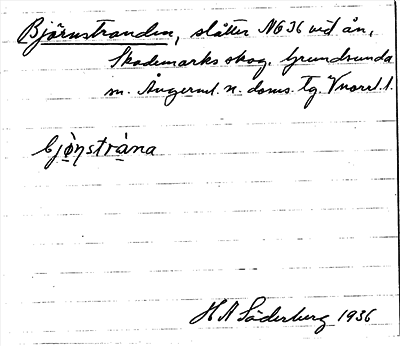 Björnstranden, slåtter N636 vid ån,
Skademarks skog, Grundsunda
sn. Ångerml. n. doms. tg. Vnorrl. l.
bjø̀ṇstràna
H A Söderberg 1936